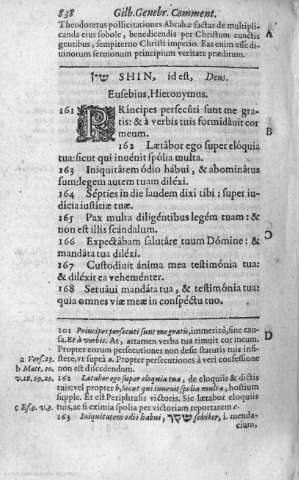 838 Gilb. Genebr. Comment.
Theodoretus pollicitationes Abrahæ factas de multipli-
canda eius sobole, benedicendis per Christum cunctis
gentibus, sempiterno Christi imperio. Eas enim esse di-
uinorum sermonum principium veritate præditum.
A
שין SHIN, id est, Dens.
Eusebius, Hieronymus.
161 PRíncipes persecúti sunt me gra-
tis: & à verbis tuis formidáuit cor
meum.
B
162 Lætábor ego super elóquia
tua: sicut qui inuénit spólia multa.
163 Iniquitátem ódio hábui, & abominátus
sum: legem autem tuam diléxi.
164 Sépties in die laudem dixi tibi: super iudí-
cia iustítiæ tuæ.
165 Pax multa diligéntibus legém tuam: &
non est illis scándalum.
C
166 Expectábam salutáre tuum Dómine: &
mandáta tua diléxi.
167 Custodíuit ánima mea testimónia tua:
& diléxit ea veheménter.
168 Seruáui mandáta tua, & testimónia tua:
quia omnes viæ meæ in conspéctu tuo.
161 Principes persecuti sunt me gratis, immeritò, sine cau-
sa. Et à verbis. At, attamen verba tua timuit cor meum.
Propter eorum persecutiones non desii statutis tuis insi-
a Vers. 23. stere, vt suprà a. Propter persecutiones à veri confessione
b Matt. 10. non est discedendum.
v. 18. 19. 20. 162 Lætabor ego super eloquia tua, de eloquiis & dictis
tuis: vel propter b, Sicut qui inuenit spolia multa, hostium
supple. Et est Periphrasis victoris. Sic lætabor eloquiis
c Esa. 9. v. 3. tuis, ac si eximia spolia per victoriam reportarem c.
163 Iniquitatem odio habui, שקר schiker, i. menda-
cium,